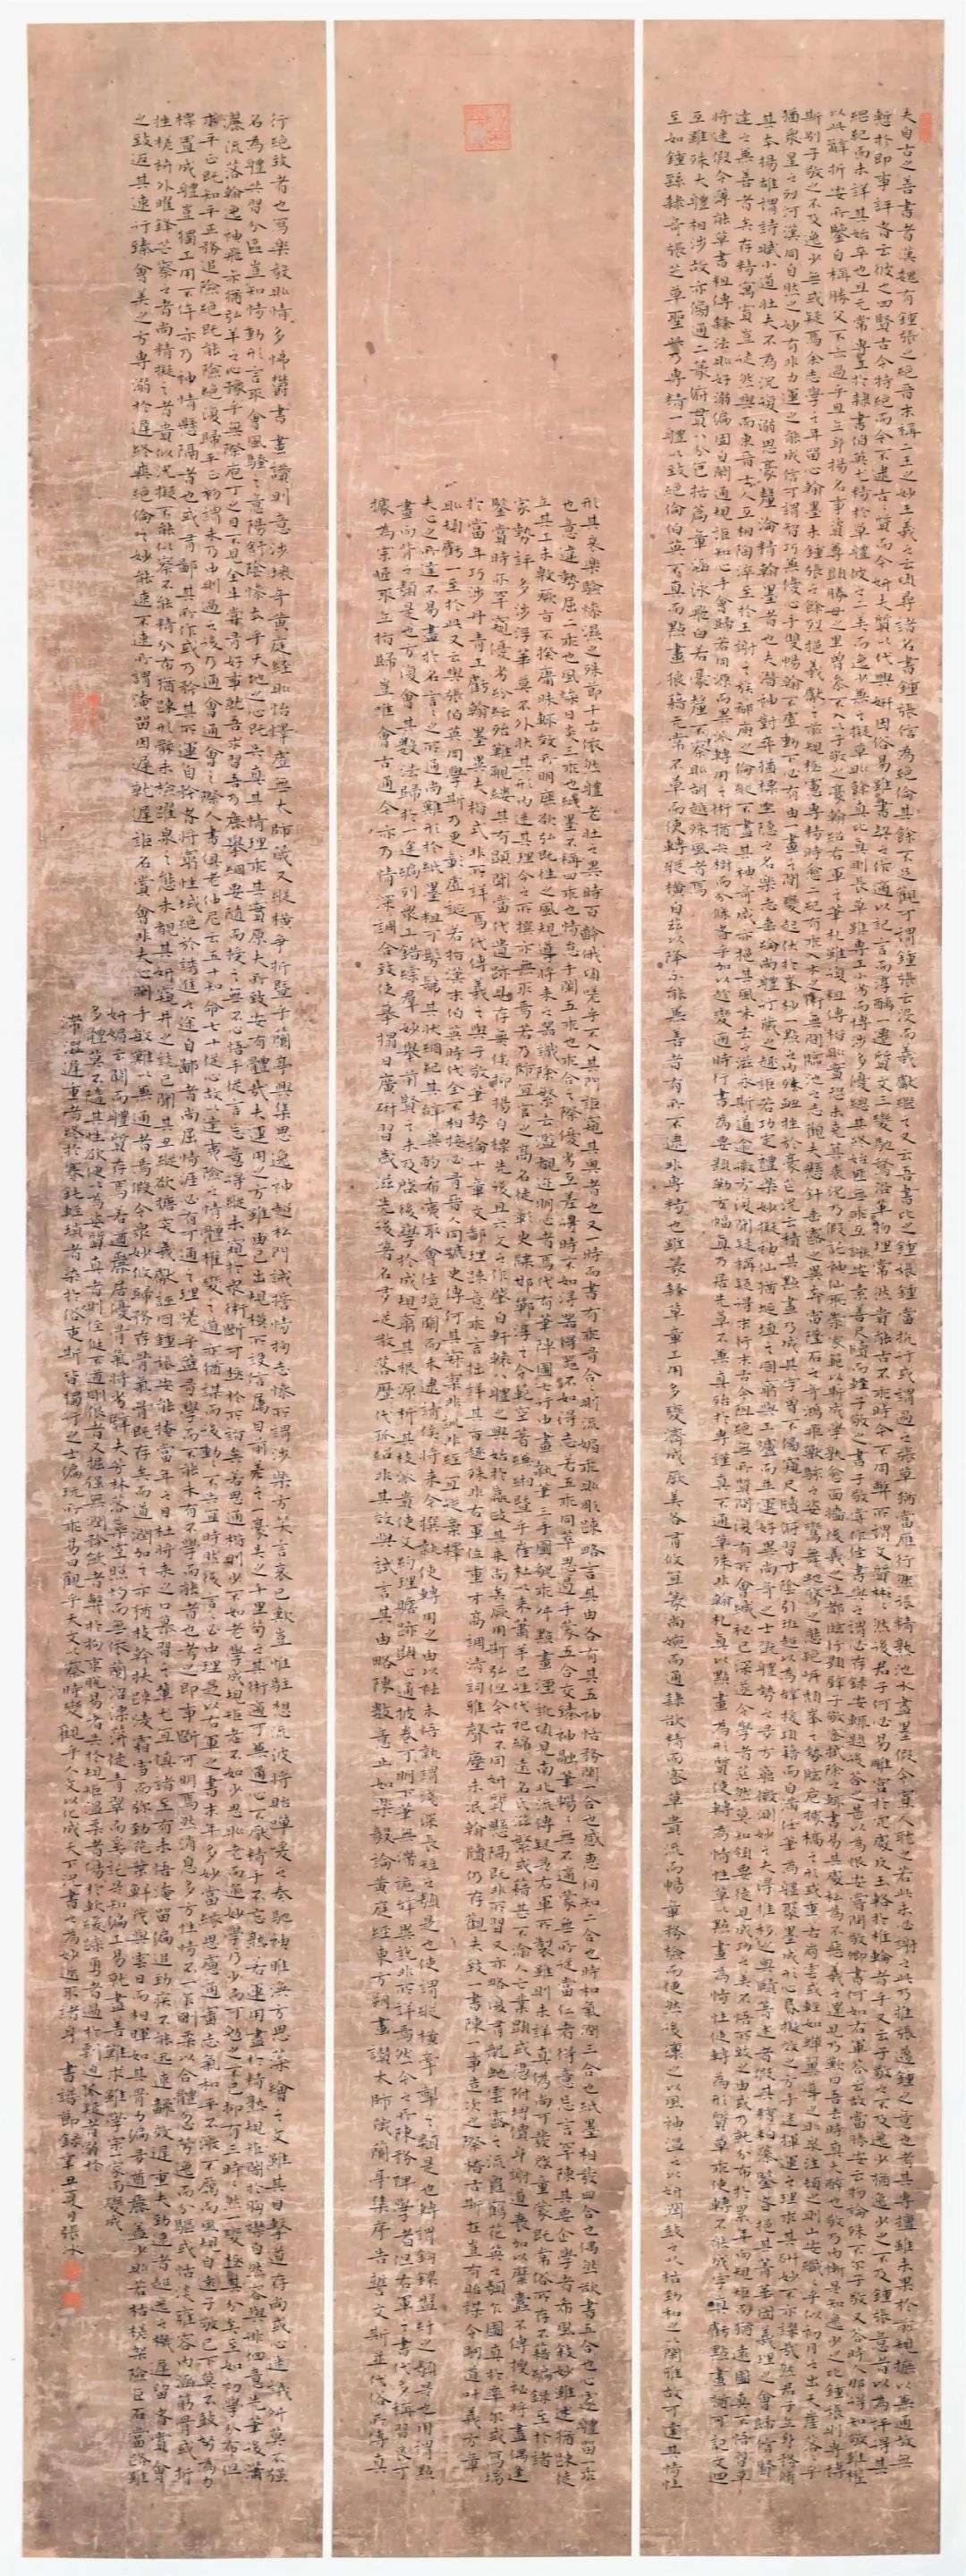 夫自古之善書者漢魏有鍾張之絕晉末稱二王之妙王羲之云頃尋諸名書鍾張信為絕倫其餘不足觀可謂鍾張云沒而羲獻繼之又云吾書比之鍾張鍾當抗行或謂過之張草猶當雁行然張精熟池水盡墨假令寡人耽之若此未必謝之此乃推張邁鍾之意也考其專擅雖未果於前規摭以兼通故無
慙於即事評者云彼之四賢古今特絕而今不逮古古質而今妍夫質以代興妍因俗易雖書契之作適以記言而淳醨一遷質文三變馳騖沿革物理常然貴能古不乖時今不同弊所謂文質彬彬然後君子何必易雕宮於穴處反玉輅於椎輪者乎又云子敬之不及逸少猶逸少之不及鍾張意者以為評得其
綱紀而未詳其始卒也且元常專工於隸書伯英尤精於草體彼之二美而逸少兼之擬草則餘真比真則長草雖專工小劣而博涉多優總其終始匪無乖互謝安素善尺牘而輕子敬之書子敬嘗作佳書與之謂必存錄安輒題後答之甚以為恨安嘗問敬卿書何如右軍答云故當勝安云物論殊不爾子敬又答時人那得知敬雖權
以此辭折安所鑒自稱勝父不亦過乎且立身揚名事資尊顯勝母之里曾參不入以子敬之豪翰紹右軍之筆札雖復粗傳楷則實恐未克箕裘況乃假託神仙恥崇家範以斯成學孰愈面牆後羲之往都臨行題壁子敬密拭除之輒書易其處私為不惡羲之還見乃歎曰吾去時真大醉也敬乃內慚是知逸少之比鍾張則專博
斯別子敬之不及逸少無或疑焉余志學之年留心翰墨味鍾張之餘烈挹羲獻之前規極慮專精時逾二紀有乖入木之術無間臨池之志觀夫懸針垂露之異奔雷墜石之奇鴻飛獸駭之姿鸞舞蛇驚之態絕岸頹峰之勢臨危據槁之形或重若崩雲或輕如蟬翼導之則泉注頓之則山安纖纖乎似初月之出天崖落落乎
猶眾星之列河漢同自然之妙有非力運之能成信可謂智巧兼優心手雙暢翰不虛動下必有由一畫之間變起伏於峰杪一點之內殊衄挫於毫芒況云積其點畫乃成其字曾不傍窺尺牘俯習寸陰引班超以為辭援項籍而自滿任筆為體聚墨成形心昏擬效之方手迷揮運之理求其妍妙不亦謬哉然君子立身務修
其本揚雄謂詩賦小道壯夫不為況復溺思毫釐淪精翰墨者也夫潛神對弈猶標坐隱之名樂志垂綸尚體行藏之趣詎若功定禮樂妙擬神仙猶埏埴之罔窮與工鑪而並運好異尚奇之士翫體勢之多方窮微測妙之夫得推移之奧賾著述者假其糟粕藻鑒者挹其菁華固義理之會歸信賢
達之兼善者矣存精寓賞豈徒然與而東晉士人互相陶淬至於王謝之族郗庾之倫縱不盡其神奇咸亦挹其風味去之滋永斯道逾微方復聞疑稱疑得末行末古今阻絕無所質問設有所會緘秘已深遂令學者茫然莫知領要徒見成功之美不悟所致之由或乃就分布於累年向規矩而猶遠圖真不悟習草
將迷假令薄能草書粗傳隸法則好溺偏固自閡通規詎知心手會歸若同源而異派轉用之術猶共樹而分條者乎加以趨變適時行書為要題勒方幅真乃居先草不兼真殆於專謹真不通草殊非翰札真以點畫為形質使轉為情性草以點畫為情性使轉為形質草乖使轉不能成字真虧點畫猶可記文迴
互雖殊大體相涉故亦傍通二篆俯貫八分包括篇章涵泳飛白若毫釐不察則胡越殊風者焉
至如鍾繇隸奇張芝草聖此乃專精一體以致絕倫伯英不真而點畫狼藉元常不草而使轉縱橫自茲以降不能兼善者有所不逮非專精也雖篆隸草章工用多變濟成厥美各有攸宜篆尚婉而通隸欲精而密草貴流而暢章務檢而便然後凜之以風神溫之以妍潤鼓之以枯勁和之以閑雅故可達其情性
形其哀樂驗燥濕之殊節千古依然體老壯之異時百齡俄頃嗟乎不入其門詎窺其奧者也又一時而書有乖有合合則流媚乖則彫疎略言其由各有其五神怡務閑一合也感惠徇知二合也時和氣潤三合也紙墨相發四合也偶然欲書五合也心遽體留一乖
也意違勢屈二乖也風燥日炎三乖也紙墨不稱四乖也情怠手闌五乖也乖合之際優劣互差得時不如得器得器不如得志若五乖同萃思遏手蒙五合交臻神融筆暢暢無不適蒙無所從當仁者得意忘言罕陳其要企學者希風敘妙雖述猶疎徒
立其工未敷厥旨不揆庸昧輒效所明庶欲弘既往之風規導將來之器識除繁去濫覩迹明心者焉代有筆陣圖七行中畫執筆三手圖貌乖舛點畫湮訛頃見南北流傳疑是右軍所製雖則未詳真偽尚可發啟童蒙既常俗所存不藉編錄至於諸
家勢評多涉浮華莫不外狀其形內迷其理今之所撰亦無取焉若乃師宜官之高名徒彰史牒邯鄲淳之令範空著縑緗暨乎崔杜以來蕭羊已往代祀綿遠名氏滋繁或藉甚不渝人亡業顯或憑附增價身謝道衰加以糜蠹不傳搜秘將盡偶逢
鑒賞時亦罕窺優劣紛紜殆難覼縷其有顯聞當代遺跡見存無俟抑揚自標先後且六文之作肇自軒轅八體之興始於嬴政其來尚矣厥用斯弘但今古不同妍質懸隔既非所習又亦略諸復有龍蛇雲露之流龜鶴花英之類乍圖真於率爾或寫瑞
於當年巧涉丹青工虧翰墨異夫楷式非所詳焉代傳羲之與子敬筆勢論十章文鄙理疎意乖言拙詳其旨趣殊非右軍且右軍位重才高調清詞雅聲塵未泯翰牘仍存觀夫致一書陳一事造次之際稽古斯在豈有貽謀令嗣道叶義方章
則頓虧一至於此又云與張伯英同學斯乃更彰虛誕若指漢末伯英時代全不相接必有晉人同號史傳何其寂寥非訓非經宜從棄擇
夫心之所達不易盡於名言言之所通尚難形於紙墨粗可髣髴其狀綱紀其辭冀酌希夷取會佳境闕而未逮請俟將來今撰執使轉用之由以祛未悟執謂淺深長短之類是也使謂縱橫牽掣之類是也轉謂鉤鐶盤紆之類是也用謂點
畫向背之類是也方復會其數法歸於一途編列眾工錯綜群妙舉前賢之未及啟後學於成規窮其根源析其枝派貴使文約理贍跡顯心通披卷可明下筆無滯詭辭異說非所詳焉然今之所陳務裨學者但右軍之書代多稱習良可
據為宗匠取立指歸豈唯會古通今亦乃情深調合致使摹搨日廣研習歲滋先後著名多從散落歷代孤紹非其效與試言其由略陳數意止如樂毅論黃庭經東方朔畫讚太師箴蘭亭集序告誓文斯並代俗所傳真
行絕致者也寫樂毅則情多怫鬱書畫讚則意涉瓌奇黃庭經則怡懌虛無太師箴又縱橫爭折暨乎蘭亭興集思逸神超私門誡誓情拘志慘所謂涉樂方笑言哀已歎豈惟駐想流波將貽嘽喛之奏馳神睢渙方思藻繪之文雖其目擊道存尚或心迷議舛莫不強
名為體共習分區豈知情動形言取會風騷之意陽舒陰慘本乎天地之心既失其情理乖其實原夫所致安有體哉夫運用之方雖由己出規模所設信屬目前差之一豪失之千里苟知其術適可兼通心不厭精手不忘熟若運用盡於精熟規矩闇於胸襟自然容與徘徊意先筆後瀟
灑流落翰逸神飛亦猶弘羊之心預乎無際庖丁之目不見全牛嘗有好事就吾求習吾乃粗舉綱要隨而授之無不心悟手從言忘意得縱未窮於眾術斷可極於所詣矣若思通楷則少不如老學成規矩老不如少思則老而逾妙學乃少而可勉勉之不已抑有三時時然一變極其分矣至如初學分布但
求平正既知平正務追險絕既能險絕復歸平正初謂未及中則過之後乃通會通會之際人書俱老仲尼云五十知命七十從心故以達夷險之情體權變之道亦猶謀而後動動不失宜時然後言言必中理矣是以右軍之書末年多妙當緣思慮通審志氣和平不激不厲而風規自遠子敬已下莫不鼓努為力
標置成體豈獨工用不侔亦乃神情懸隔者也或有鄙其所作或乃矜其所運自矜者將窮性域絕於誘進之途自鄙者尚屈情涯必有可通之理嗟乎蓋有學而不能未有不學而能者也考之即事斷可明焉然消息多方性情不一乍剛柔以合體忽勞逸而分驅或恬淡雍容內涵筋骨或折
挫槎枿外曜鋒芒察之者尚精擬之者貴似況擬不能似察不能精分布猶疎形骸未檢躍泉之態未覩其妍窺井之談已聞其醜縱欲搪突羲獻誣罔鍾張安能掩當年之目杜將來之口慕習之輩尤宜慎諸至有未悟淹留偏追勁疾不能迅速翻效遲重夫勁速者超逸之機遲留者賞會
之致返其速行臻會美之方專溺於遲終爽絕倫之妙能速不速所謂淹留因遲就遲詎名賞會非夫心閑手敏難以兼通者焉假令眾妙攸歸務存骨氣骨既存矣而遒潤加之亦猶枝幹扶疎凌霜雪而彌勁花葉鮮茂與雲日而相暉如其骨力偏多遒麗蓋少則若枯槎架險巨石當路雖
妍媚云闕而體質存焉若遒麗居優骨氣將劣譬夫芳林落蕊空照灼而無依蘭沼漂蓱徒青翠而奚託是知偏工易就盡善難求雖學宗一家而變成
多體莫不隨其性欲便以為姿質直者則俓侹不遒剛佷者又掘強無潤矜斂者弊於拘束脫易者失於規矩溫柔者傷於軟緩躁勇者過於剽迫狐疑者溺於
滯澀遲重者終於蹇鈍輕瑣者染於俗吏斯皆獨行之士偏翫所乖易曰觀乎天文以察時變觀乎人文以化成天下況書之為妙近取諸身 書譜節錄辛丑夏月張冰